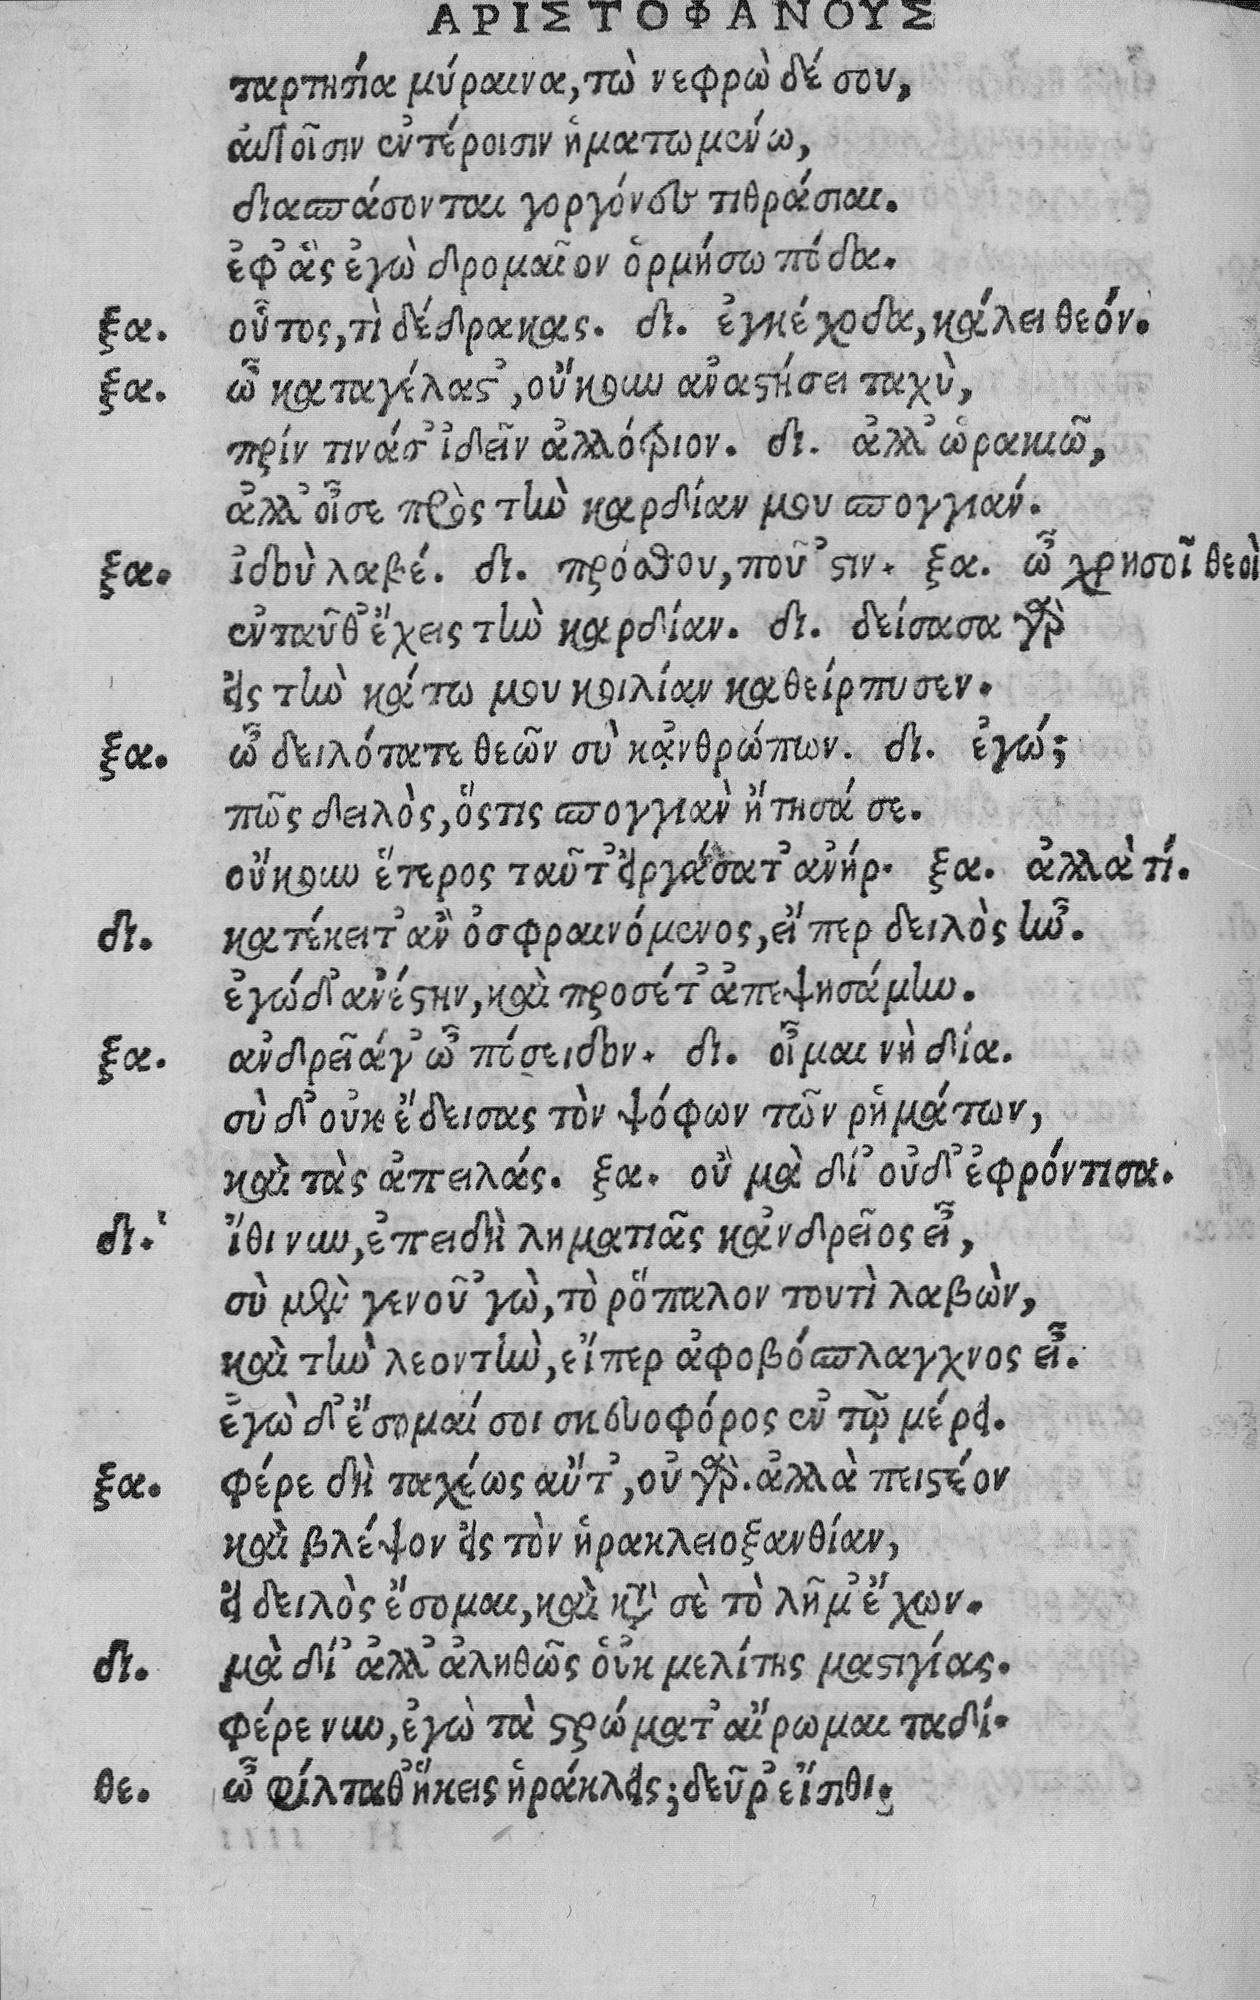 ΑΡΙΣΤΟΦΑΝΟΥΣ
ταρτησία μύραινα, τὼ νεφρὼ δέ σου,
αὐτοῖσιν ἐντέροισιν ἡματωμένω,
διασπάσονται γοργόνες τιθράσιαι.
ἐφ᾽ ἃς ἐγὼ δρομαῖον ὁρμήσω πόδα.
ξα. οὗτος, τὶ δέδρακας. δι. ἐγκέχοδα, κάλει θεόν.
ξα. ὦ καταγέλαστ᾽, οὔκουν ἀναστήσει ταχὺ,
πρίν τινά σ᾽ ἰδεῖν ἀλλότριον. δι. ἀλλ᾽ ὡρακιῶ,
ἀλλ᾽ οἶσε πρὸς τὴν καρδίαν μου σπογγιάν.
ξα. ἰδοὺ λαβέ. δι. πρόσθου, ποῦ ᾽στιν. ξα. ὦ χρησοῖ θεοὶ
ἐνταῦθ᾽ ἔχεις τὴν καρδίαν. δι. δείσασα γὰρ
εἰς τὴν κάτω μου κοιλίαν καθείρπυσεν.
ξα. ὦ δειλότατε θεῶν σὺ κἀνθρώπων. δι. ἐγώ;
πῶς δειλὸς, ὅστις σπογγιὰν ᾔτησά σε.
οὔκουν ἕτερος ταῦτ᾽ εἰργάσατ᾽ ἀνήρ. ξα. ἀλλὰ τί.
δι. κατέκειτ᾽ ἂν ὀσφραινόμενος, εἴπερ δειλὸς ἦν.
ἐγώ δ᾽ ἀνέστην, καὶ προσέτ᾽ ἀπεψησάμην.
ξα. ἀνδρεῖά γ᾽ ὦ πόσειδον. δι. οἶμαι νὴ δία.
σὺ δ᾽ οὐκ ἔδεισας τὸν ψόφων τῶν ῥημάτων,
καὶ τὰς ἀπειλάς. ξα. οὐ μὰ δί᾽ οὐδ᾽ ἐφρόντισα.
δι. ἴθι νυν, ἐπειδὴ ληματιᾶς κἀνδρεῖος εἶ,
σὺ μὲν γενοῦ ᾽γὼ, τὸ ῥόπαλον τουτὶ λαβὼν,
καὶ τὴν λεοντὴν, εἴπερ ἀφοβόσπλαγχνος εἶ.
ἐγὼ δ᾽ ἔσομαί σοι σκευοφόρος ἐν τῷ μέρει.
ξα. φέρε δὴ ταχέως αὔτ᾽, οὐ γὰρ. ἀλλὰ πειστέον
καὶ βλέψον εἰς τὸν ἡρακλειοξανθίαν,
εἰ δειλὸς ἔσομαι, καὶ κατὰ σὲ τὸ λῆμ᾽ ἔχων.
δι. μὰ δί᾽ ἀλλ᾽ ἀληθῶς οὑκ μελίτης μαστιγίας.
φέρε νυν, ἐγὼ τὰ στρώματ᾽ αἴρωμαι ταδί.
θε. ὦ φίλταθ᾽ ἥκεις ἡράκλεις; δεῦρ᾽ εἴσιθι.